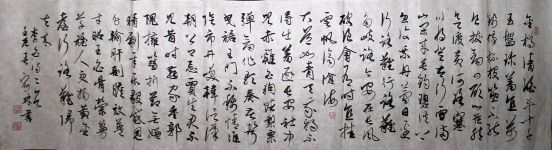 金樽清酒斗十千
玉盤珍羞直萬
錢停杯投箸不能
食拔劍四顧心茫然欲
渡黃河冰塞
川將登太行雪滿
山閑來垂釣碧溪上
忽復乘舟夢日邊
行路難行路難
多歧路今安在長風
破浪會有時直挂
雲帆濟滄海
大道如青天我獨不
得出羞逐長安社中
兒赤雞白狗賭梨栗
彈劍作歌奏苦聲
曳裾王門不稱情淮
陰市井笑韓信漢
朝公卿忌賈生君不
見昔時燕家重郭
隗擁篲折節無嫌
猜劇辛樂毅感恩
分輸肝剖膽效英
才昭王白骨縈蔓
草誰人更掃黃金臺
行路難歸
去來
李白詩二首